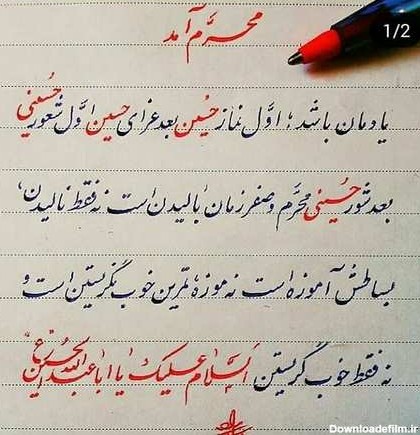 1/2
محرّم آمد
یادمان باشد ؛ اوّل نماز حُسین بعد عزای حسین اوّل شعور حُسینی
بعد شور حُسینی محرّم و صفر زمان بالیدن است نه فقط نالیدن،
بساطش آموزه است نه موزه، تمرین خوب نگریستن است و
نه فقط خوب گریستن اَلسَّلامُ عَلیکَ یا اَبا عَبدِاللهِ الحُسَین (ع)
Downloadefilm.ir